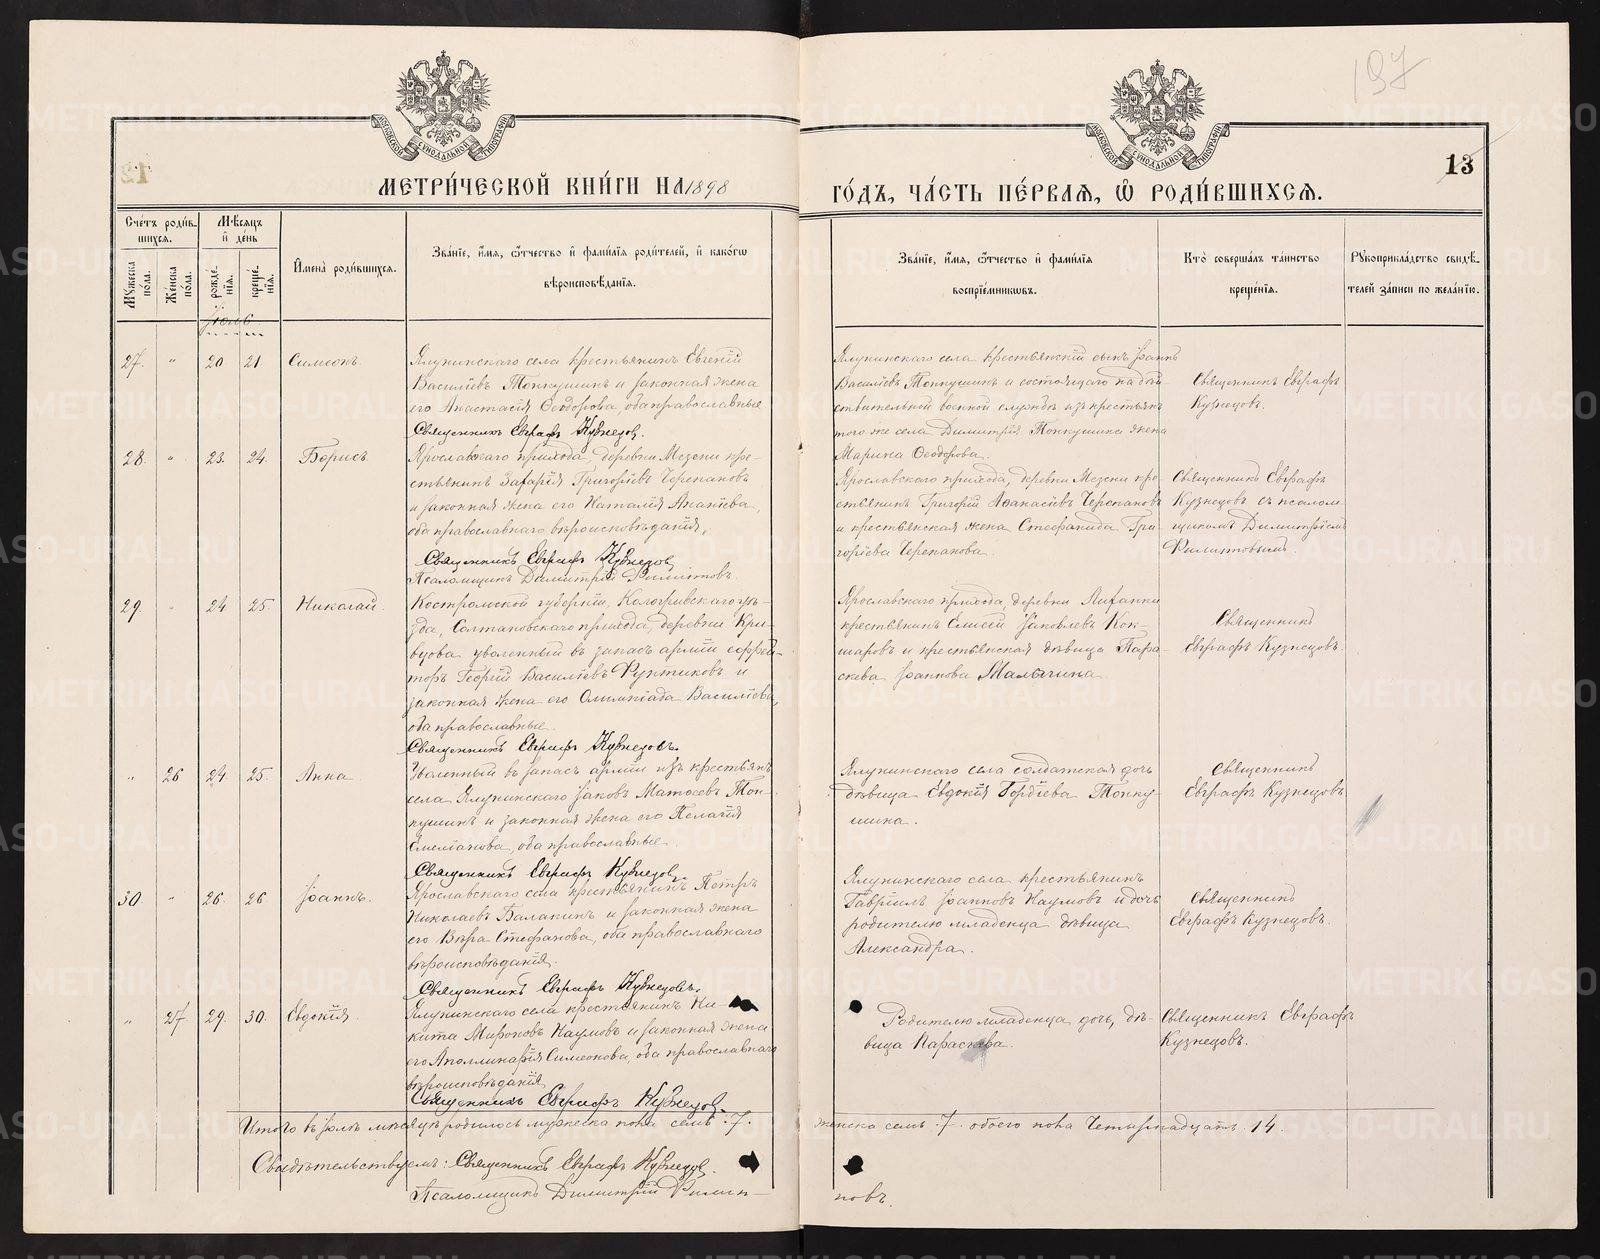 197
13
МЕТРИ́ЧЕСКОЙ КНИ́ГИ НА 1898
ГО́ДЪ, ЧА́СТЬ ПЕ́РВАЯ, Ѽ РОДИ́ВШИХСЯ.
Сче́тъ роди́вшихся.
Му́жеска по́ла.
Же́нска по́ла.
Мѣ́сяцъ и҆ де́нь
рожде́нїя.
креще́нїя.
И҆мена̀ роди́вшихся.
Зва́нїе, и҆́мя, ѻ҆́тчество и҆ фами́лїя роди́телей, и҆ како́гѡ
вѣроисповѣ́данїя.
Зва́нїе, и҆́мя, ѻ҆́тчество и҆ фами́лїя
воспрїе́мникѡвъ.
Кто̀ соверша́лъ та́инство
креще́нїя.
Рꙋкоприкла́дство свидѣ́телей за́писи по жела́нїю.
Іюль
27. " 20 21 Симеонъ.
Ялунинскаго села крестьянинъ Евгеній
Василіевъ Топкушинъ и законная жена
его Анастасія Ѳеодорова, оба православные
Священникъ Евграфъ Кузнецов.
Ялунинскаго села крестьянскій сынъ Іоаннъ
Василіевъ Топкушинъ и состоящаго на дѣй-
ствительной военной службѣ изъ крестьянъ
того же села Димитрія Топкушина жена
Марина Ѳеодорова.
Священникъ Евграфъ
Кузнецовъ.
28. " 23. 24. Борисъ
Ярославскаго прихода, деревни Мезени кре-
стьянинъ Захарія Григоріевъ Черепановъ
и законная жена его Наталія Ананіева,
оба православнаго вѣроисповѣданія,
Священникъ Евграфъ Кузнецов
Псаломщикъ Димитрій Филиповъ
Ярославскаго прихода, деревни Мезени кре-
стьянинъ Григорій Аѳанасіевъ Черепановъ
и крестьянская жена Стефанида Гри-
горіева Черепанова.
Священникъ Евграфъ
Кузнецовъ съ псалом-
щикомъ Димитріемъ
Филиповымъ.
29. " 24 25. Николай.
Костромской губерніи, Кологривскаго уѣ-
зда, Солтановскаго прихода, деревни Кри-
цова, уволенный въ запасъ арміи ефрей-
торъ Георгій Василіевъ Фунтиковъ и
законная жена его Олимпіада Василіева,
оба православные
Священникъ Евграфъ Кузнецовъ.
Ярославскаго прихода, деревни
крестьянинъ Елисей Іаковлевъ Кок-
шаровъ и крестьянская дѣвица Пара-
скева Іоаннова Малыгина.
Священникъ
Евграфъ Кузнецовъ.
" 26 24. 25. Анна
Уволенный въ запасъ арміи изъ крестьянъ
села Ялунинскаго Іаковъ Матѳеевъ Топ-
кушинъ и законная жена его Пелагія
Емеліанова, оба православные.
Священникъ Евграфъ Кузнецов.
Ялунинскаго села солдатская дочь
дѣвица Евдокія Гордіева Топку-
шина.
Священникъ
Евграфъ Кузнецовъ
30. " 26. 26 Іоаннъ.
Ярославскаго села крестьянинъ Петръ
Николаевъ Балакинъ и законная жена
его Вѣра Стефанова, оба православнаго
вѣроисповѣданія.
Священникъ Евграфъ Кузнецовъ.
Ялунинскаго села крестьянинъ
Гавріилъ Іоанновъ Наумовъ и дочь
родителю младенца дѣвица
Александра.
Священникъ
Евграфъ Кузнецовъ.
" 27 29. 30. Евдокія
Ялунинскаго села крестьянинъ Ни-
кита Мироновъ Наумовъ и законная жена
его Аполлинарія Симеонова, оба православнаго
вѣроисповѣданія
Священникъ Евграфъ Кузнецов.
Родителю младенца дочь, дѣ-
вица Параскева.
Священникъ Евграфъ
Кузнецовъ.
Итого въ Іюлѣ мѣсяцѣ родилось мужеска пола семь .7.
женска семь .7. обоего пола четырнадцать .14.
Свидѣтельствуемъ: Священникъ Евграфъ Кузнецов.
Псаломщикъ Димитрій Филип-
повъ.